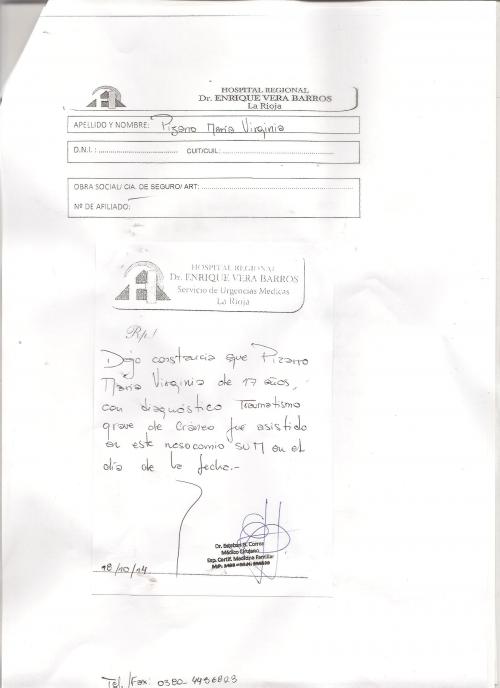 HOSPITAL REGIONAL
Dr. ENRIQUE VERA BARROS
La Rioja
APELLIDO Y NOMBRE: Pizarro María Virginia
D.N.I. : CUIT/CUIL:
OBRA SOCIAL/ CIA. DE SEGURO/ ART:
Nº DE AFILIADO:
HOSPITAL REGIONAL
Dr. ENRIQUE VERA BARROS
Servicio de Urgencias Medicas
La Rioja
Rp/
Dejo constancia que Pizarro
María Virginia de 17 años,
con diagnóstico Traumatismo
grave de Cráneo fue asistido
en este nosocomio SUM en el
día de la fecha.-
Dr. Esteban
Médico Cirujano
Esp. Certif. Medicina Familiar
18/10/14
Tel./Fax: 0380-